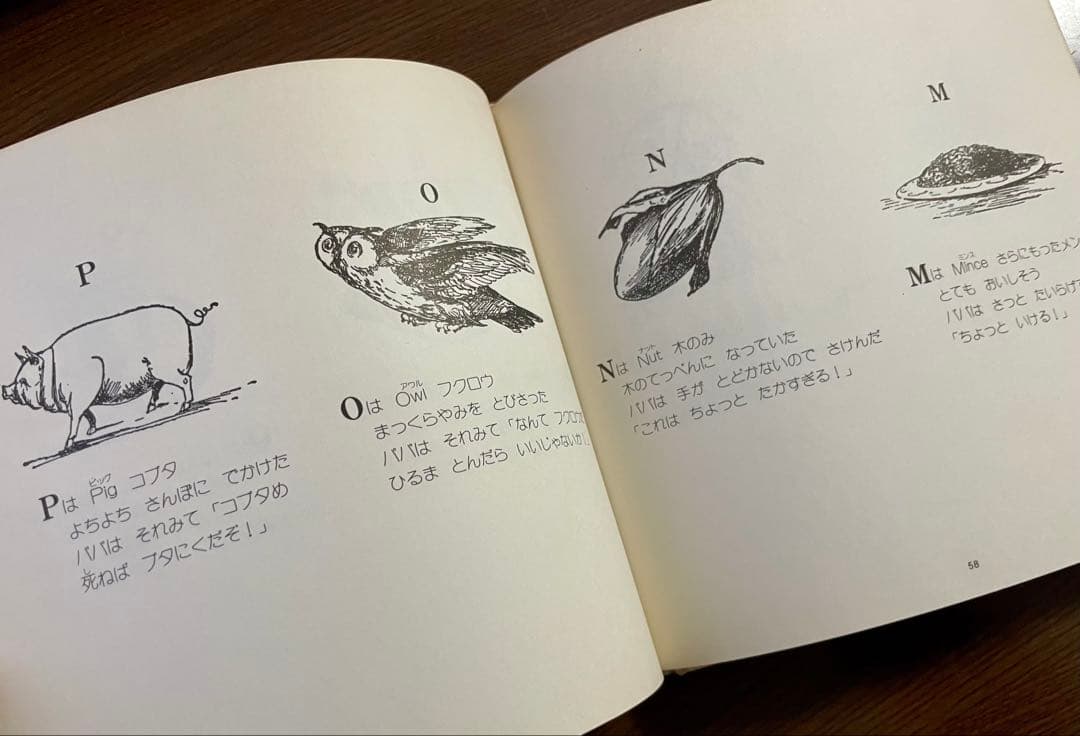 M
ミンス
Mは Mince さらにもったメン
とても おいしそう
パパは さっと たいらげ
「ちょっと いける！」
N
ナット
Nは Nut 木のみ
木のてっぺんに なっていた
パパは 手が とどかないので さけんだ
「これは ちょっと たかすぎる！」
58
O
アウル
Oは Owl フクロウ
まっくらやみを とびさった
パパは それみて「なんて フクロウ
ひるま とんだら いいじゃないか」
P
ピッグ
Pは Pig コブタ
よちよち さんぽに でかけた
パパは それみて「コブタめ
し
死ねば ブタにくだぞ！」